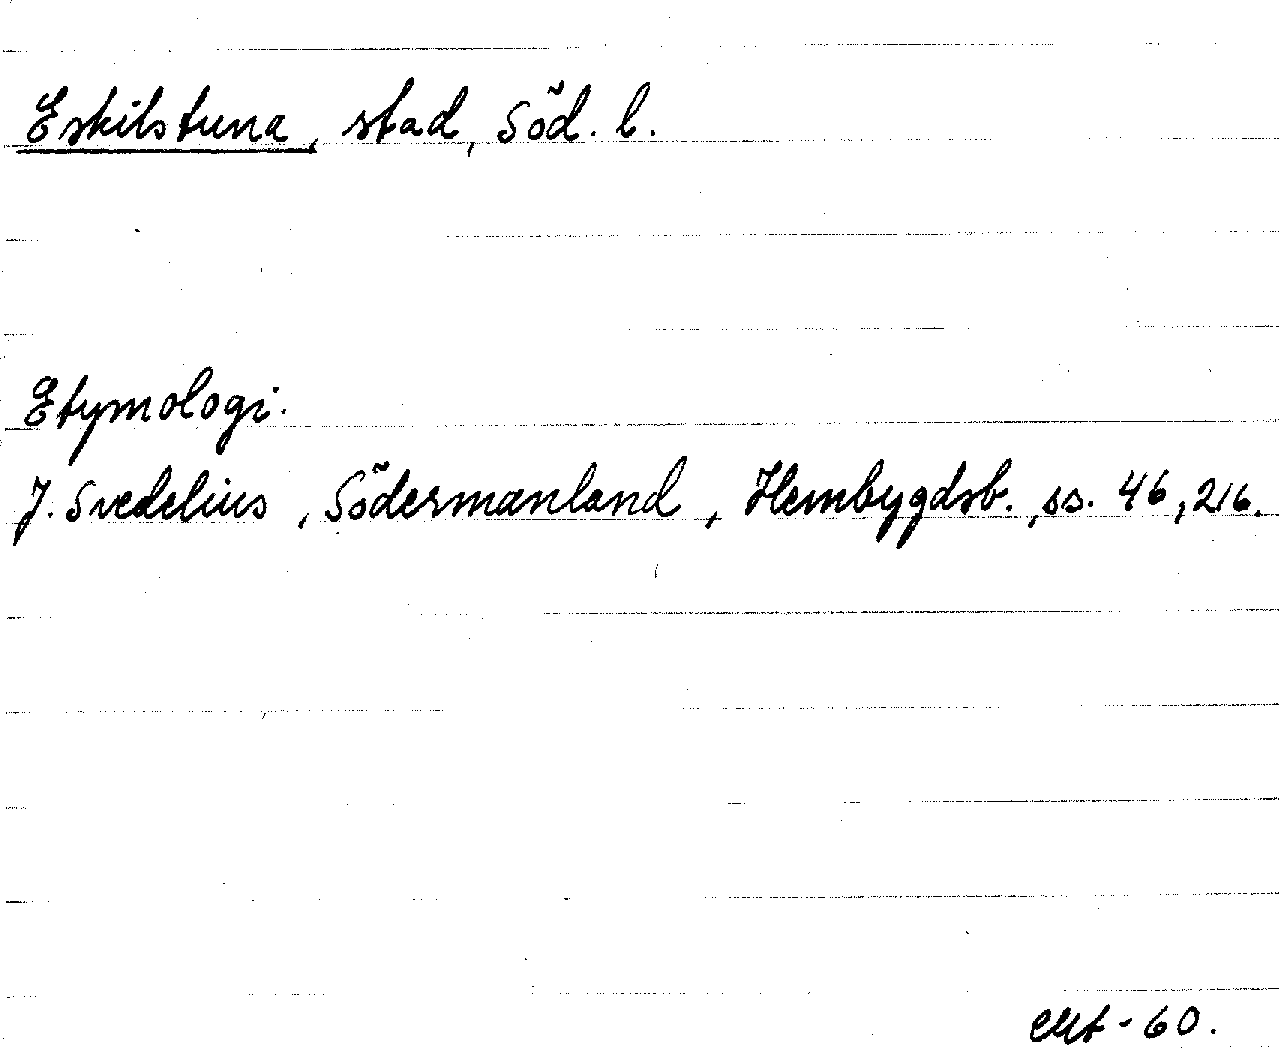 Eskilstuna, stad, Söd. l.
Etymologi.
J. Svedelius, Södermanland, Hembygdsb., ss. 46, 216.
-60.